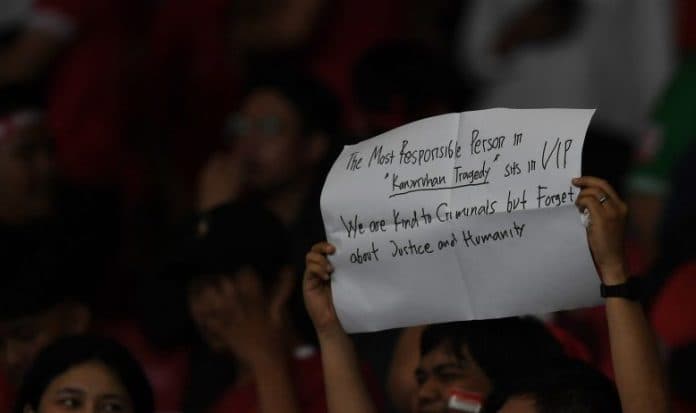 The Most Responsible Person in
"Kanjuruhan Tragedy" sits in VIP
We are Kind to Criminals but Forget
about Justice and Humanity